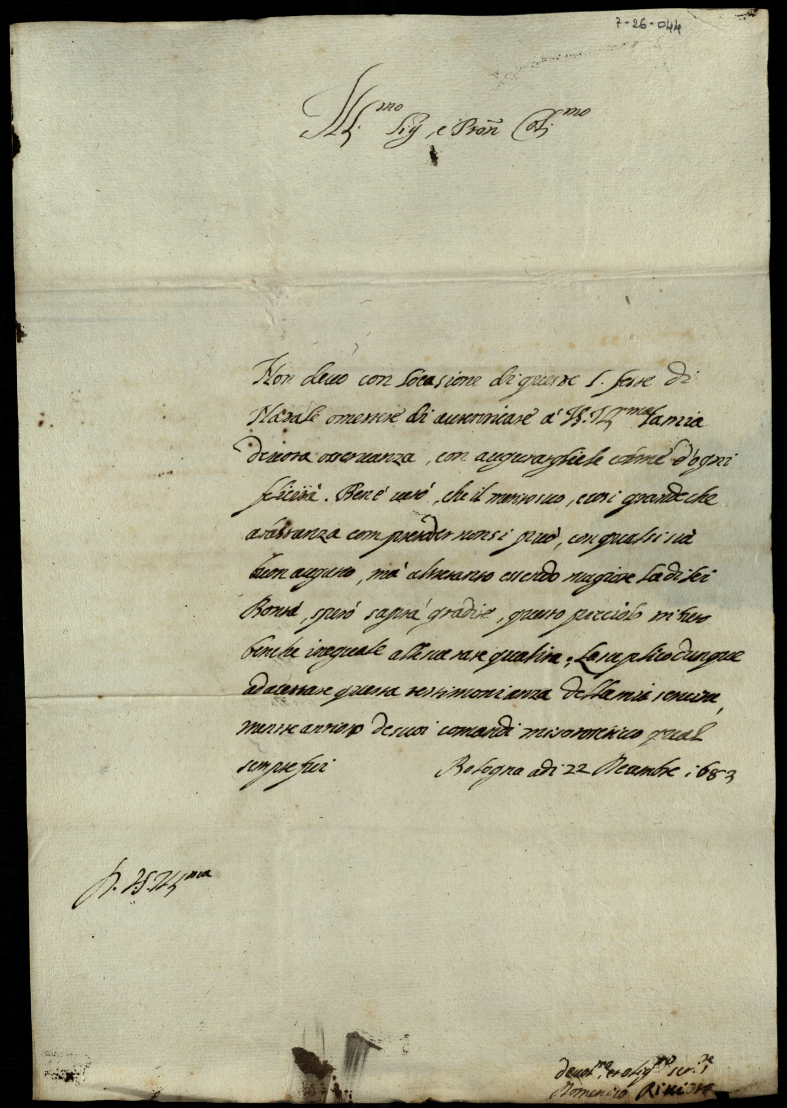 7-26-044
Ill.mo Sig. e Pron Col.mo
Non devo con l'ocasione di queste S. feste di
Natale omettere di autenticare à V.S. Ill.ma la mia
devota osservanza, con augurarghiele colme d'ogni
felicità. Ben è vero, che il merto suo, e così grande che
a bastanza comprender non si può, con qual si sia
buon augurio, mà altretanto essendo magiore la di lei
Bontà, sperò saprà gradire, questo picciolo
benche ineguale alle sue rare qualità. La suplico dunque
ad acettare questa testimonianza della mia servitù,
mentre ansioso de suoi comandi mi sottoscrivo qual
sempre fui Bologna adi 22 Decembre 1683
D. V.S. Ill.ma
devot.mo et oblig.mo ser.re
Domenico